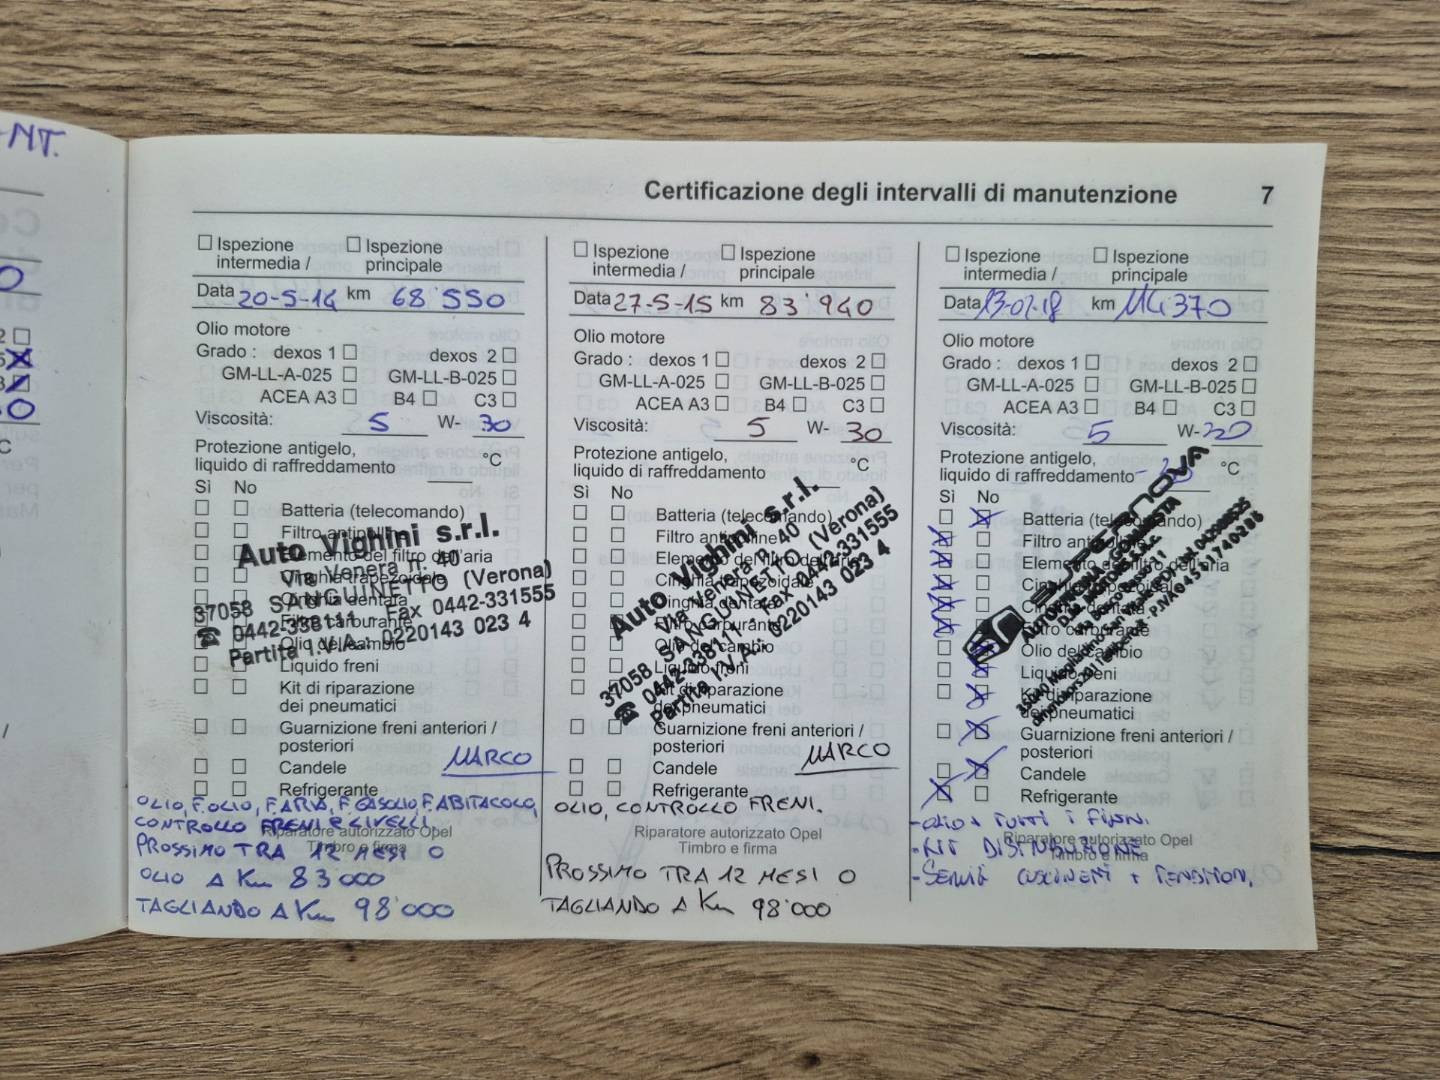 -NT.
Certificazione degli intervalli di manutenzione 7
Ispezione intermedia / Ispezione principale
Data 20-5-14 km 68'550
Olio motore
Grado : dexos 1 dexos 2
GM-LL-A-025 GM-LL-B-025
ACEA A3 B4 C3
Viscosità: 5 W- 30
Protezione antigelo,
liquido di raffreddamento °C
Sì No
Batteria (telecomando)
Filtro antipolline
Elemento del filtro dell'aria
Cinghia trapezoidale
Cinghia dentata
Filtro carburante
Olio del cambio
Liquido freni
Kit di riparazione
dei pneumatici
Guarnizione freni anteriori /
posteriori
Candele
Refrigerante
Auto Vighini s.r.l.
Via Venera n. 40
37058 SANGUINETTO (Verona)
☎ 0442-338111 - Fax 0442-331555
Partita I.V.A.: 0220143 023 4
MARCO
OLIO, F.OLIO, F.ARIA, F.GASOLIO, F.ABITACOLO,
CONTROLLO FRENI e LIVELLI
Riparatore autorizzato Opel
Timbro e firma
PROSSIMO TRA 12 MESI O
OLIO A Km 83'000
TAGLIANDO A Km 98'000
Ispezione intermedia / Ispezione principale
Data 27-5-15 km 83'940
Olio motore
Grado : dexos 1 dexos 2
GM-LL-A-025 GM-LL-B-025
ACEA A3 B4 C3
Viscosità: 5 W- 30
Protezione antigelo,
liquido di raffreddamento °C
Sì No
Batteria (telecomando)
Filtro antipolline
Elemento del filtro dell'aria
Cinghia trapezoidale
Cinghia dentata
Filtro carburante
Olio del cambio
Liquido freni
Kit di riparazione
dei pneumatici
Guarnizione freni anteriori /
posteriori
Candele
Refrigerante
Auto Vighini s.r.l.
Via Venera n. 40
37058 SANGUINETTO (Verona)
☎ 0442-338111 - Fax 0442-331555
Partita I.V.A.: 0220143 023 4
MARCO
OLIO, CONTROLLO FRENI.
Riparatore autorizzato Opel
Timbro e firma
PROSSIMO TRA 12 MESI O
TAGLIANDO A Km 98'000
Ispezione intermedia / Ispezione principale
Data 13-07-18 km 114370
Olio motore
Grado : dexos 1 dexos 2
GM-LL-A-025 GM-LL-B-025
ACEA A3 B4 C3
Viscosità: 5 W-
Protezione antigelo,
liquido di raffreddamento °C
Sì No
Batteria (telecomando)
Filtro antipolline
Elemento del filtro dell'aria
Cinghia trapezoidale
Cinghia dentata
Filtro carburante
Olio del cambio
Liquido freni
Kit di riparazione
dei pneumatici
Guarnizione freni anteriori /
posteriori
Candele
Refrigerante
-OLIO + TUTTI I FILTRI
Riparatore autorizzato Opel
-KIT DISTRIBUZIONE
Timbro e firma
-SERVIZI CUSCINETTI + TENDITORI.